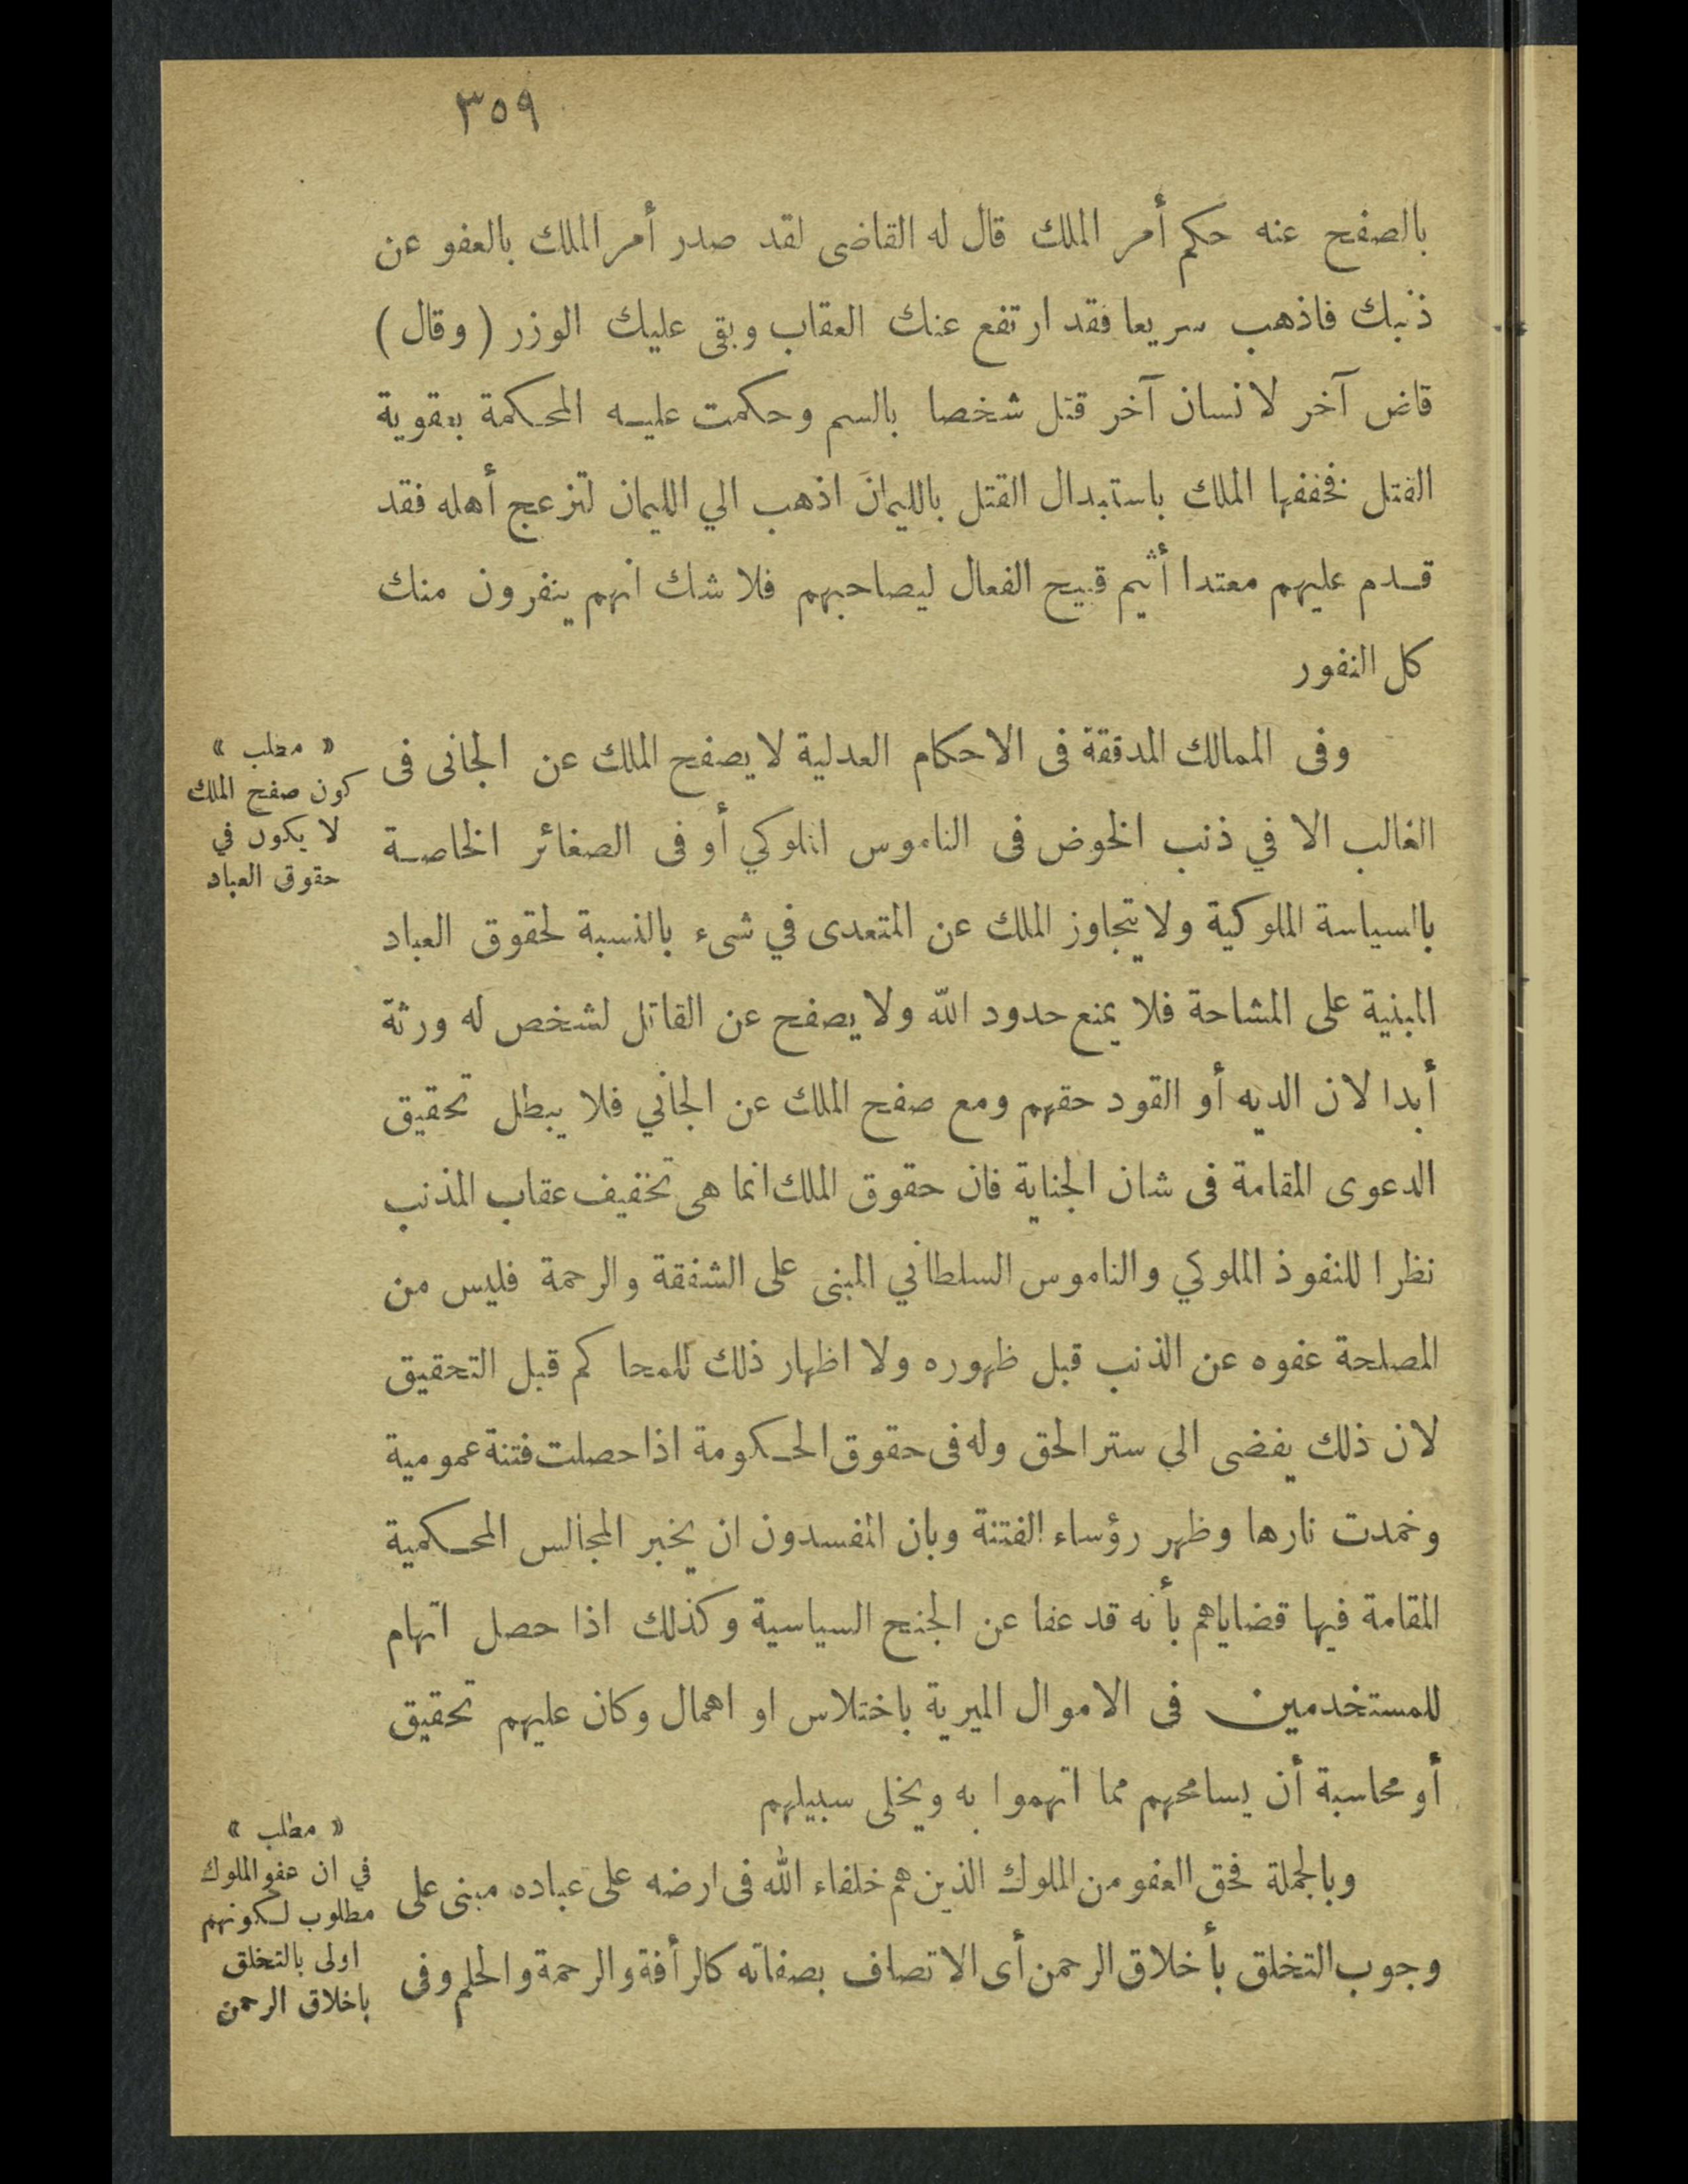 ٣٥٩
بالصفح عنه حكم أمر الملك قال له القاضى لقد صدر أمر الملك بالعفو عن
ذنبك فاذهب سريعا فقد ارتفع عنك العقاب وبقى عليك الوزر ( وقال )
قاض آخر لانسان آخر قتل شخصا بالسم وحكمت عليه المحكمة بعقوبة
القتل فخففها الملك باستبدال القتل بالليمان اذهب الي الليمان لتزعج أهله فقد
قدم عليهم معتدا أثيم قبيح الفعال ليصاحبهم فلا شك انهم ينفرون منك
كل النفور
وفى الممالك المدققة فى الاحكام العدلية لا يصفح الملك عن الجانى فى
الغالب الا في ذنب الخوض فى الناموس الملوكي أو فى الصغائر الخاصة
بالسياسة الملوكية ولا يتجاوز الملك عن المتعدى في شىء بالنسبة لحقوق العباد
المبنية على المشاحة فلا يمنع حدود الله ولا يصفح عن القاتل لشخص له ورثة
أبدا لان الديه أو القود حقهم ومع صفح الملك عن الجاني فلا يبطل تحقيق
الدعوى المقامة فى شان الجناية فان حقوق الملك انما هى تخفيف عقاب المذنب
نظرا للنفوذ الملوكي والناموس السلطاني المبنى على الشفقة والرحمة فليس من
المصلحة عفوه عن الذنب قبل ظهوره ولا اظهار ذلك للمحاكم قبل التحقيق
لان ذلك يفضى الي ستر الحق وله فى حقوق الحكومة اذا حصلت فتنة عمومية
وخمدت نارها وظهر رؤساء الفتنة وبان المفسدون ان يخبر المجالس المحكمية
المقامة فيها قضاياهم بأنه قد عفا عن الجنح السياسية وكذلك اذا حصل اتهام
للمستخدمين فى الاموال الميرية باختلاس او اهمال وكان عليهم تحقيق
أو محاسبة أن يسامحهم مما اتهموا به ويخلى سبيلهم
وبالجملة فحق العفو من الملوك الذين هم خلفاء الله فى ارضه على عباده مبنى على
وجوب التخلق بأخلاق الرحمن أى الاتصاف بصفاته كالرأفة والرحمة والحلم وفى
« مطلب »
كون صفح الملك
لا يكون في
حقوق العباد
« مطلب »
في ان عفو الملوك
مطلوب لكونهم
اولى بالتخلق
باخلاق الرحمن